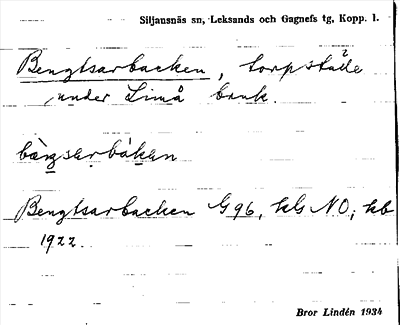 Siljansnäs sn, Leksands och Gagnefs tg, Kopp. l.
Bengtsarbacken, torpställe
under Limå bruk.
bàŋsarbákan
Bengtsarbacken G96, hls NO; kb
1922.
Bror Lindén 1934